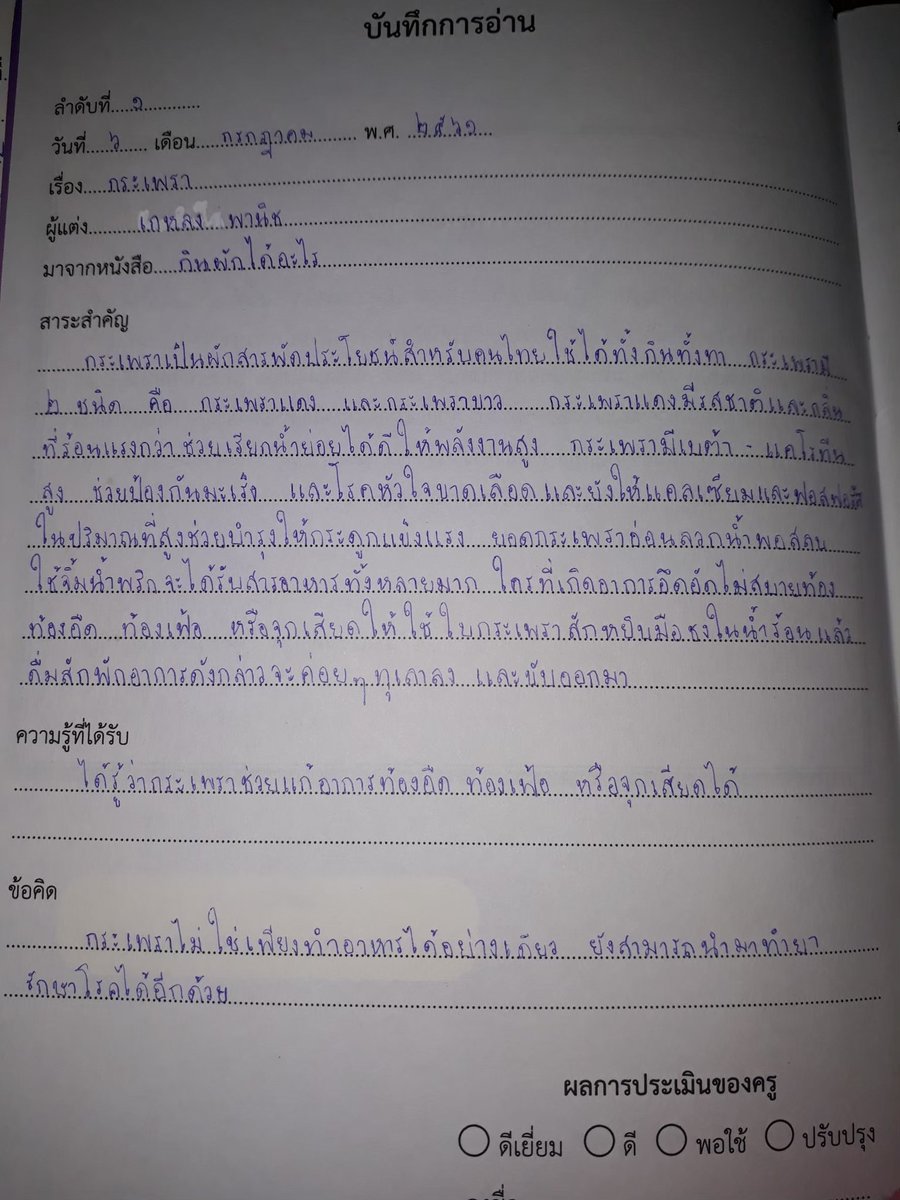 บันทึกการอ่าน
ลำดับที่....๑............
วันที่.....๖...... เดือน.....กรกฎาคม......... พ.ศ. ..๒๕๖๑...
เรื่อง.....กระเพรา
ผู้แต่ง.........เกหลง พานิช
มาจากหนังสือ.....กินผักได้อะไร
สาระสำคัญ
กระเพราเป็นผักสารพัดประโยชน์สำหรับคนไทยใช้ได้ทั้งกินทั้งทา กระเพรามี
๒ ชนิด คือ กระเพราแดง และกระเพราขาว กระเพราแดงมีรสชาติและกลิ่น
ที่ร้อนแรงกว่า ช่วยเรียกน้ำย่อยได้ดี ให้พลังงานสูง กระเพรามีเบต้า - แคโรทีน
สูง ช่วยป้องกันมะเร็ง และโรคหัวใจขาดเลือด และยังให้แคลเซียมและฟอสฟอรัส
ในปริมาณที่สูงช่วยบำรุงให้กระดูกแข็งแรง ยอดกระเพราอ่อนลวกน้ำพอสลบ
ใช้จิ้มน้ำพริกจะได้รับสารอาหารทั้งหลายมาก ใครที่เกิดอาการอึดอัดไม่สบายท้อง
ท้องอืด ท้องเฟ้อ หรือจุกเสียดให้ใช้ใบกระเพราสักหยิบมือชงในน้ำร้อนแล้ว
ดื่มสักพักอาการดังกล่าวจะค่อยๆทุเลาลง และขับออกมา
ความรู้ที่ได้รับ
ได้รู้ว่ากระเพราช่วยแก้อาการท้องอืด ท้องเฟ้อ หรือจุกเสียดได้
ข้อคิด
กระเพราไม่ใช่เพียงทำอาหารได้อย่างเดียว ยังสามารถนำมาทำยา
รักษาโรคได้อีกด้วย
ผลการประเมินของครู
ดีเยี่ยม ดี พอใช้ ปรับปรุง